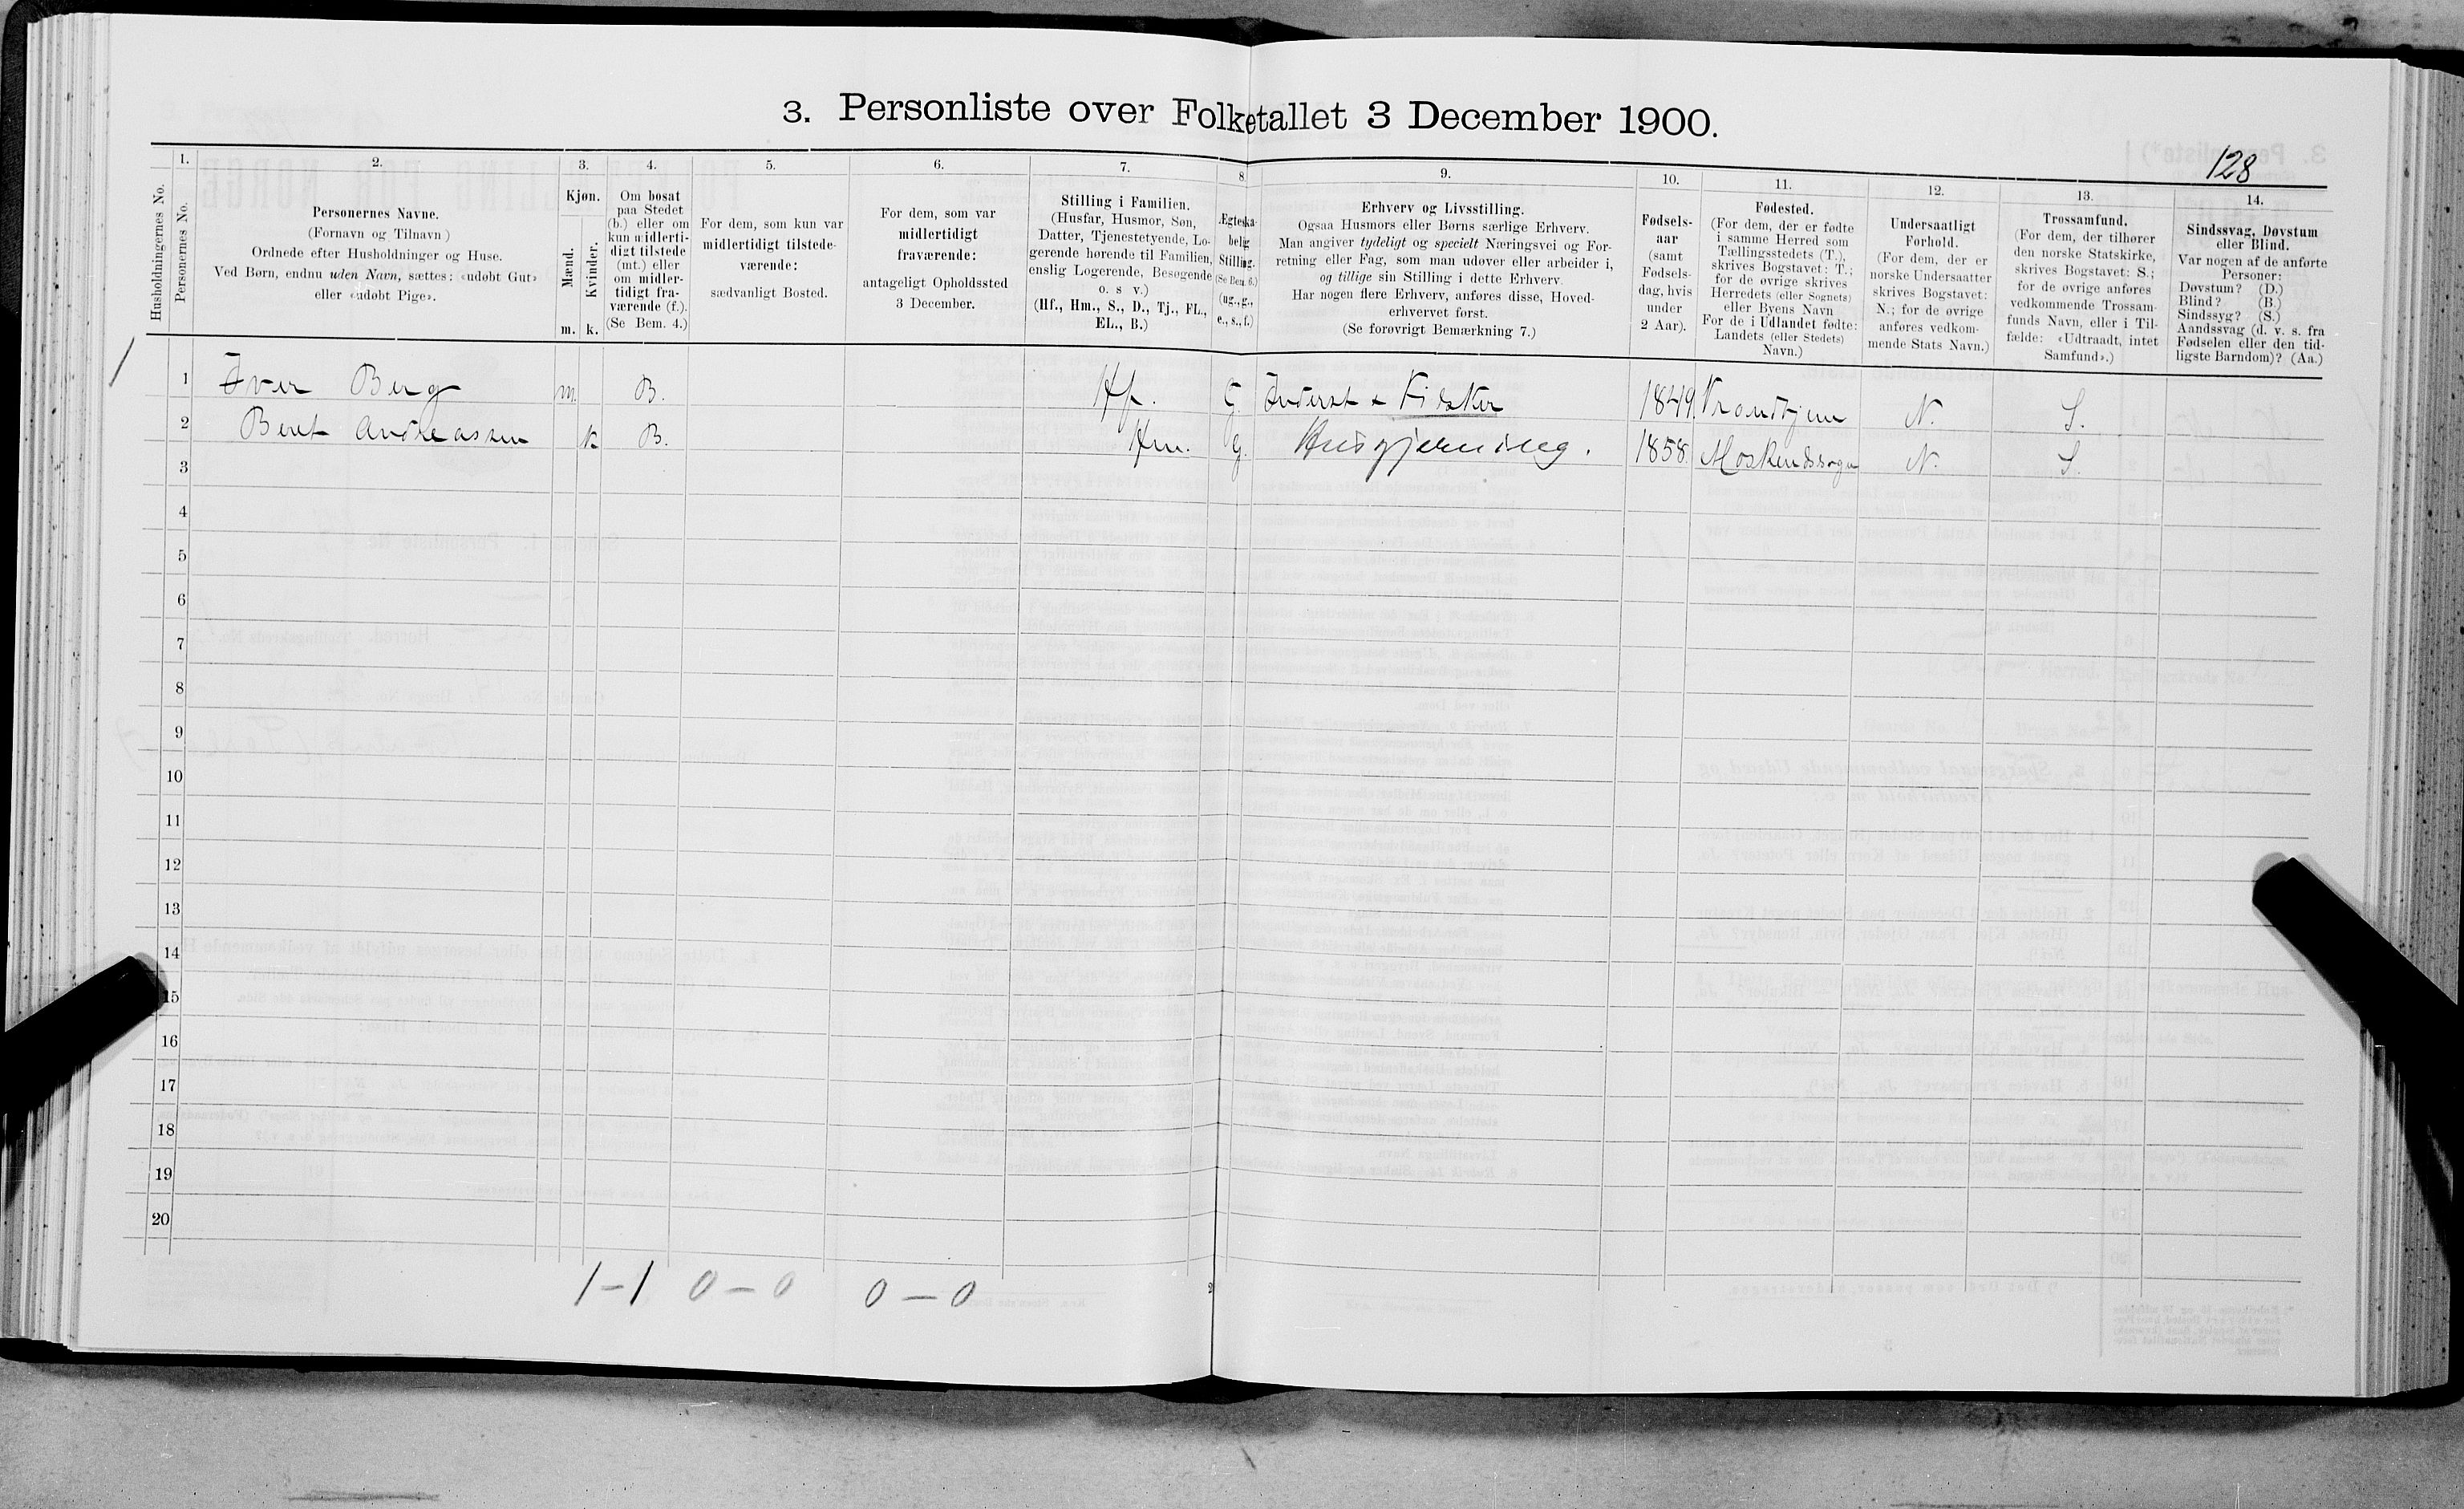 3. Personliste over Folketallet 3 December 1900.
128
Husholdningernes No.
1.
Personernes No.
2.
Personernes Navne.
(Fornavn og Tilnavn)
Ordnede efter Husholdninger og Huse.
Ved Børn, endnu uden Navn, sættes: «udøbt Gut»
eller «udøbt Pige».
3.
Kjøn.
Mænd.
m.
Kvinder.
k.
4.
Om bosat
paa Stedet
(b.) eller om
kun midlerti-
digt tilstede
(mt.) eller
om midler-
tidigt fra-
værende (f.).
(Se Bem. 4.)
5.
For dem, som kun var
midlertidigt tilstede-
værende:
sædvanligt Bosted.
6.
For dem, som var
midlertidigt
fraværende:
antageligt Opholdssted
3 December.
7.
Stilling i Familien.
(Husfar, Husmor, Søn,
Datter, Tjenestetyende, Lo-
gerende hørende til Familien,
enslig Logerende, Besøgende
o. s v.)
(Hf., Hm., S., D., Tj., FL.,
EL., B.)
8.
Ægteska-
belig
Stilling.
(Se Bem. 6.)
(ug., g.,
e., s., f.)
9.
Erhverv og Livsstilling.
Ogsaa Husmors eller Børns særlige Erhverv.
Man angiver tydeligt og specielt Næringsvei og For-
retning eller Fag, som man udøver eller arbeider i,
og tillige sin Stilling i dette Erhverv.
Har nogen flere Erhverv, anføres disse, Hoved-
erhvervet først.
(Se forøvrigt Bemærkning 7.)
10.
Fødsels-
aar
(samt
Fødsels-
dag, hvis
under
2 Aar).
11.
Fødested.
(For dem, der er fødte
i samme Herred som
Tællingsstedets (T.),
skrives Bogstavet: T.;
for de øvrige skrives
Herredets (eller Sognets)
eller Byens Navn
For de i Udlandet fødte:
Landets (eller Stedets)
Navn.)
12.
Undersaatligt
Forhold.
(For dem, der er
norske Undersaatter
skrives Bogstavet:
N.; for de øvrige
anføres vedkom-
mende Stats Navn.)
13.
Trossamfund.
(For dem, der tilhører
den norske Statskirke,
skrives Bogstavet: S.;
for de øvrige anføres
vedkommende Trossam-
funds Navn, eller i Til-
fælde: «Udtraadt, intet
Samfund».)
14.
Sindssvag, Døvstum
eller Blind.
Var nogen af de anførte
Personer:
Døvstum? (D.)
Blind? (B.)
Sindssyg? (S.)
Aandssvag (d. v. s. fra
Fødselen eller den tid-
ligste Barndom)? (Aa.)
1 1 Iver Berg m. B. Hf. G. Inderst & Fisker 1849 Trondhjem N. S.
2 Beret Andreassen k B. Hm. g. Husgjerning. 1858. Moskendssogn N. S.
3
4
5
6
7
8
9
10
11
12
13
14
15
16
17
18
19
20
1-1 0-0 0-0